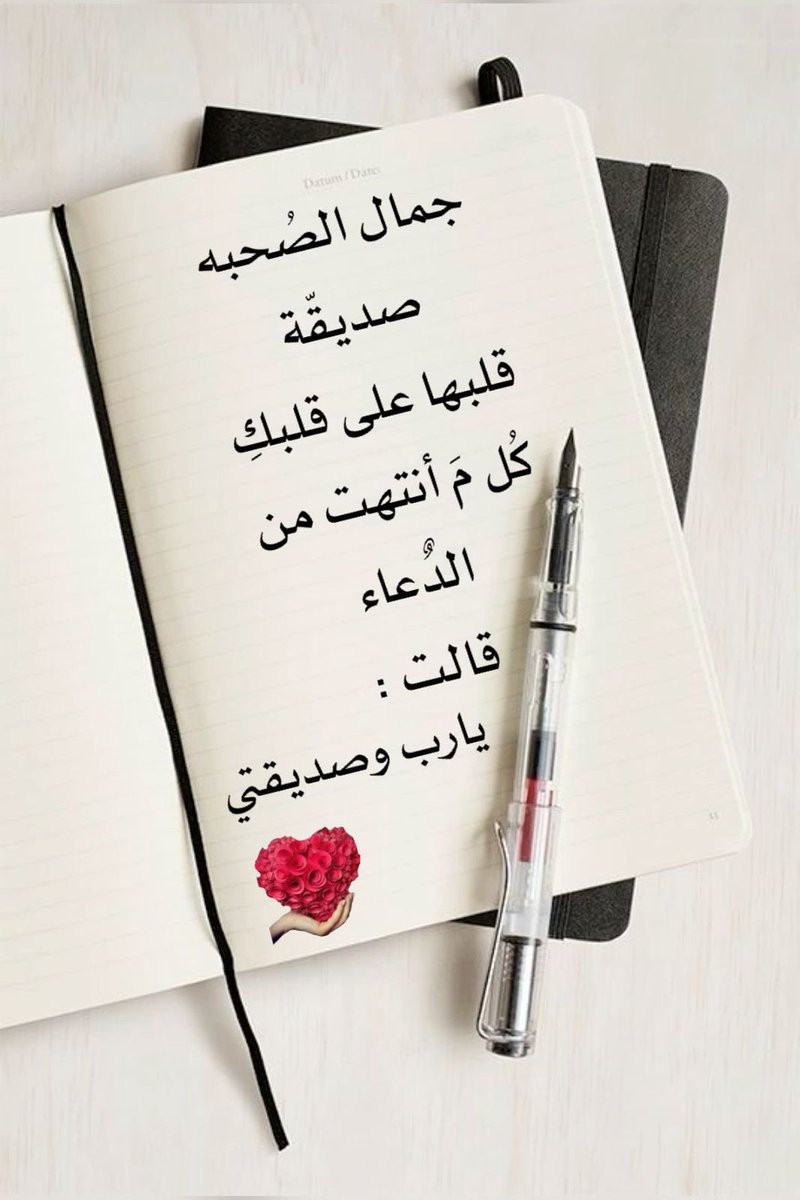 Datum / Date:
جمال الصُحبه
صديقّة
قلبها على قلبكِ
كُل مَ أنتهت من
الدٌعاء
قالت :
يارب وصديقتي